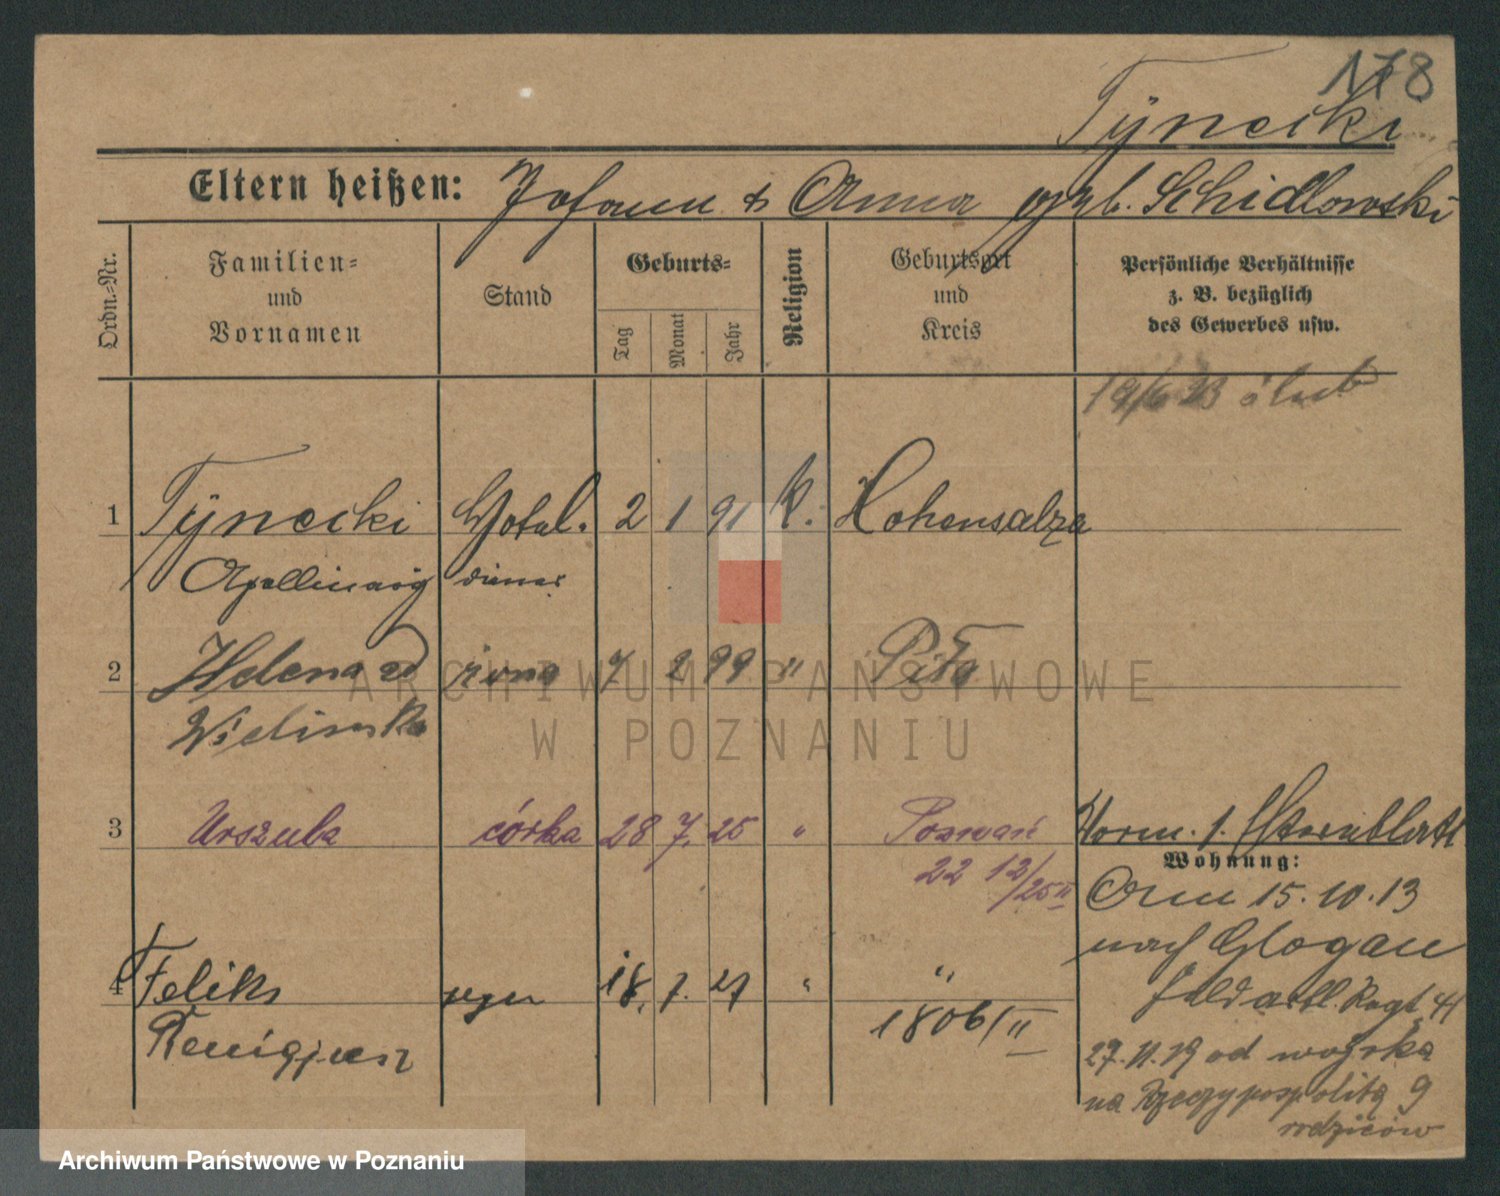 178
Tynecki
Eltern heißen: Johann & Anna geb. Schidlowski
Ordn.-Nr.
Familien-
und
Vornamen
Stand
Geburts-
Tag
Monat
Jahr
Religion
Geburtsort
und
Kreis
Persönliche Verhältnisse
z. B. bezüglich
des Gewerbes usw.
19/6 23 ślub
1 Tynecki Hotel- 2 1 91 k. Hohensalza
Apollinary diener
2 Helena zd żona 7 2 99 " Piła
Wielinska
3 Urszula córka 28 7. 25 " Poznań
22 12/25 II
Vorm. J. Sternblatt
Wohnung:
Am 15.10.13
nach Glogau
Feldartl. Regt. 41
4 Feliks syn 18. 7. 27 "
Remigjusz
1806/II
27.11.19 od wojska
na Rzeczypospolitą 9
rodziców
ARCHIWUM PAŃSTWOWE
W POZNANIU
Archiwum Państwowe w Poznaniu